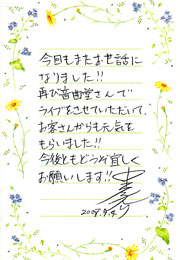 今回もまたお世話に
なりました!!
再び音曲堂さんで
ライブをさせていただいて、
お客さんからも元気を
もらいました!!
今後ともどうぞ宜しく
お願いします!!
2008.9.4.